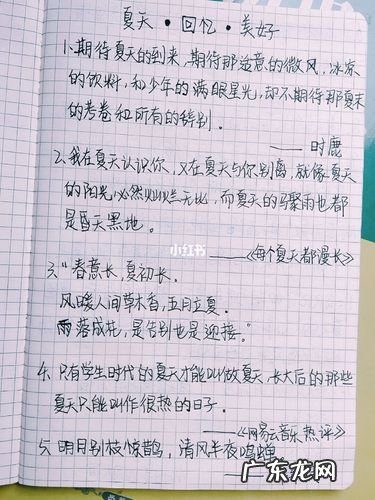 夏天·回忆·美好
1.期待夏天的到来,期待那适意的微风,冰凉
的饮料,和少年的满眼星光,却不期待那夏末
的考卷和所有的辞别。
——时鹿
2.我在夏天认识你,又在夏天与你别离,就像夏天
的阳光必然灿烂无比,而夏天的骤雨也都
是昏天黑地。
——《每个夏天都漫长》
小红书
3."春意长,夏初长.
风暖人间草木香,五月立夏.
雨落成花,是告别也是迎接."
4.只有学生时代的夏天才能叫做夏天,长大后的那些
夏天只能叫作很热的日子.
——《网易云音乐热评》
5.明月别枝惊鹊,清风半夜鸣蝉
广东龙网